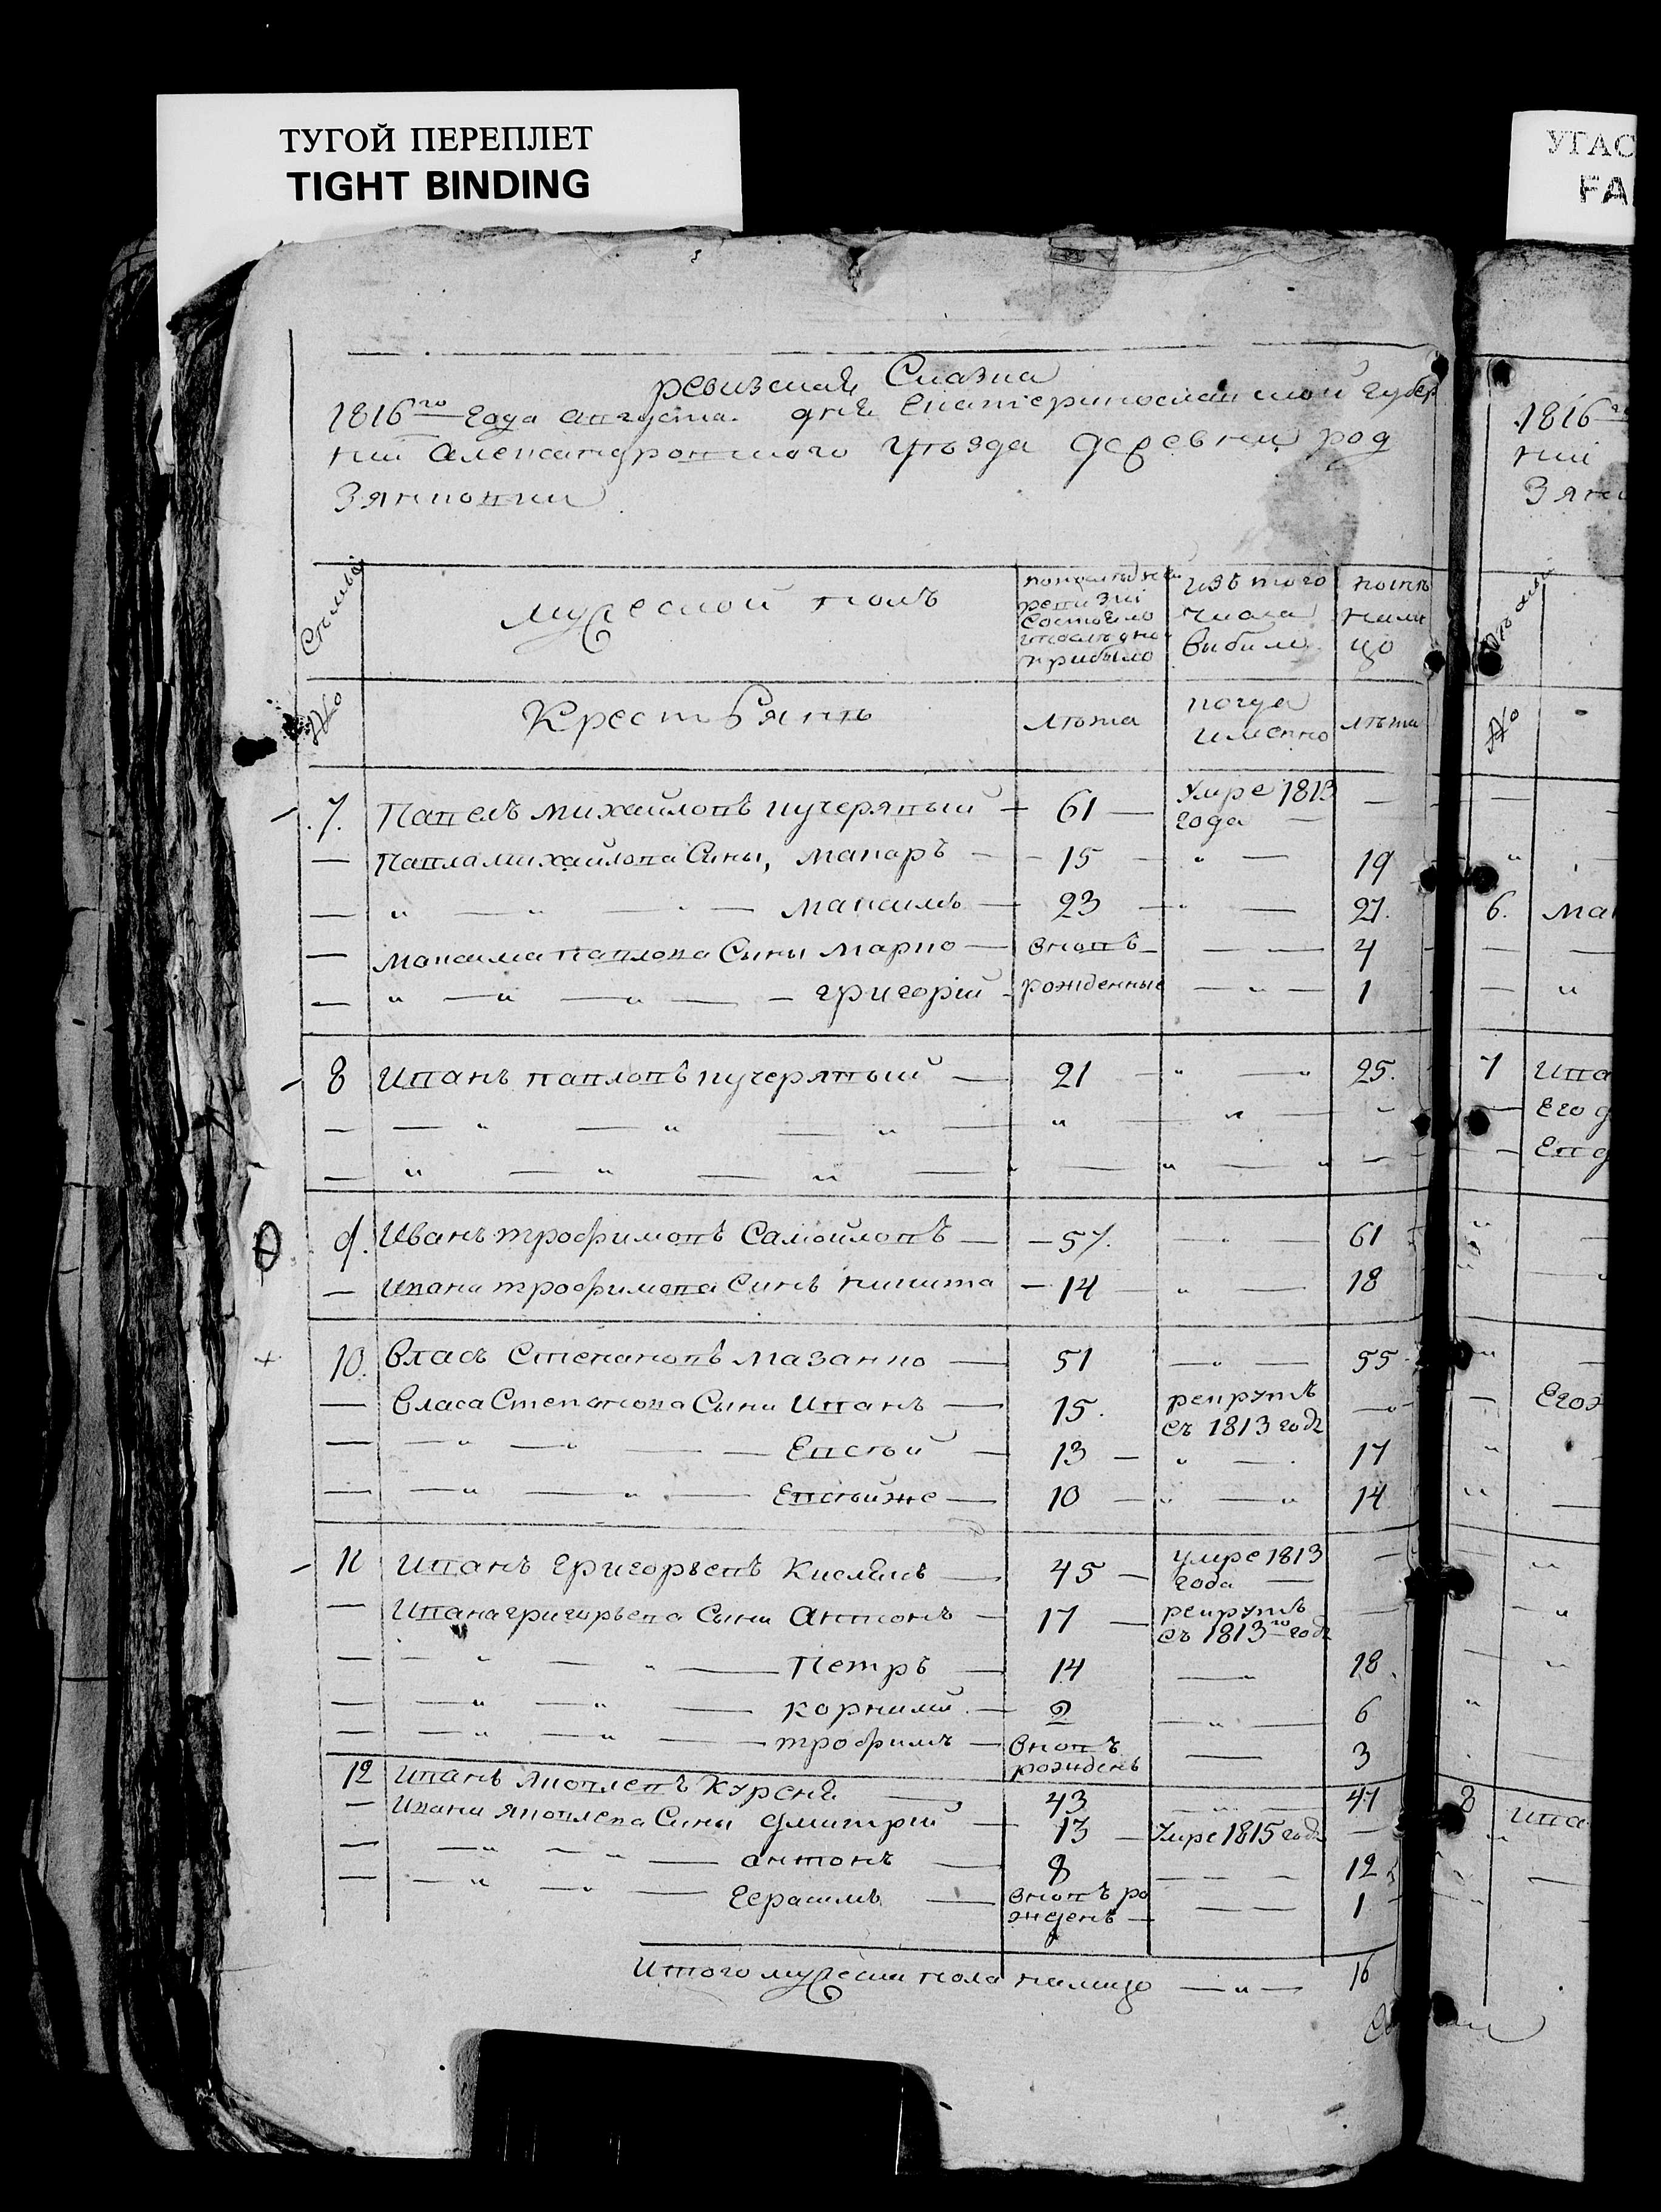 ТУГОЙ ПЕРЕПЛЕТ
TIGHT BINDING
УГАС
FA
ревизская Сказка
1816го года августа дня Екатеринославской губер
нии Александровского уѣзда деревни род
Зянковки
Семьи
мужеской полъ
попослѣдней ревизіи состояло ипослѣ оной прибыло
изъ того числа выбыло
нынѣ налицо
№
Крестьянъ
лѣта
когда именно
лѣта
7. Павелъ михайловъ кучерявый — 61 — Умре 1813 года —
— Павла михайлова Сыны, макаръ — 15 — " — 19
— " — " — максимъ — 23 — " — 27.
— максима павлова Сыны марко — вновь — — 4
— " — " — " — григорій — рожденные — " — 1
8 Иванъ павловъ кучерявый — 21 — " — " 25.
9. Иванъ трофимовъ Самойловъ — 57. — " — 61
— Ивана трофимова Синъ никита — 14 — " — 18
10. Власъ Степановъ мазанко — 51 — " — 55
— Власа Степанова Сыни Иванъ — 15. рекрутъ съ 1813 году — " —
— — " — " — Евсѣй — 13 — " — 17
— — " — " — Евсѣйже — 10 — " — " 14
11 Иванъ Григорьевъ Киселъ — 45 — умре 1813 года —
— Ивана григорьева Сыни Антонъ — 17 — рекрутъ съ 1813го году —
— — " — " — Петръ — 14 — " 18
— — " — " — корнилий — 2 — " — 6
— — " — " — трофимъ — вновъ рожденъ — 3
12 Иванъ Яковлевъ Курсня — 43 — " — 47
— Ивана яковлева Сыны дмитрій — 13 — Умре 1815 году —
— — " — " — антонъ — 8 — — — 12
— — " — " — Герасимъ — вновъ рожденъ — — — 1
Итого мужеска пола налицо — " — 16
1816
нии
Зянк
№
6. Ма
7 Ива
Его д
Ев д
Егож
8 Ива